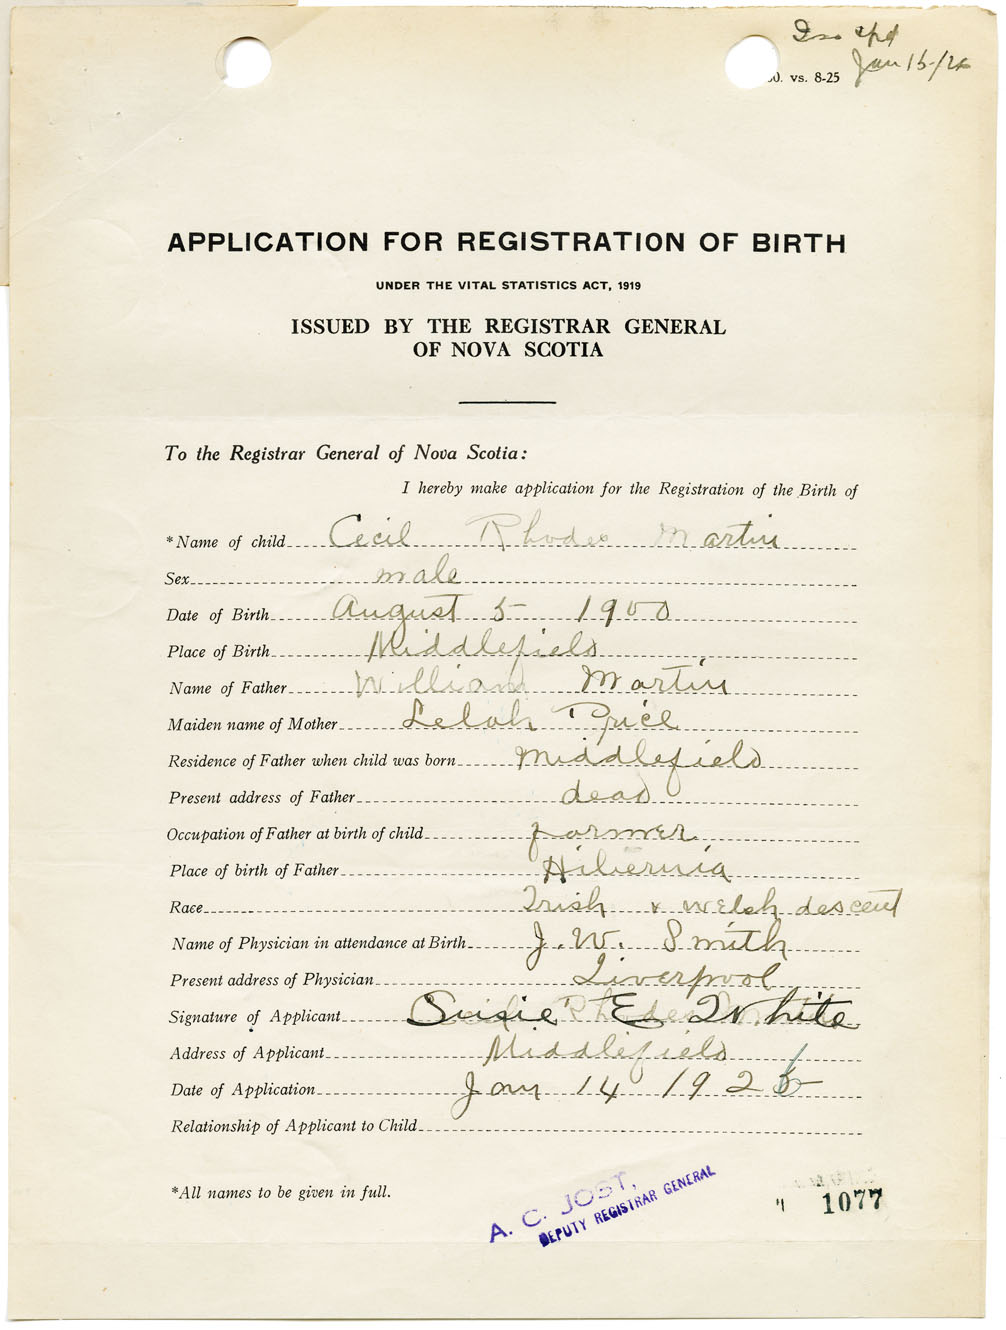 Jan 15/26
vs. 8-25
APPLICATION FOR REGISTRATION OF BIRTH
UNDER THE VITAL STATISTICS ACT, 1919
ISSUED BY THE REGISTRAR GENERAL
OF NOVA SCOTIA
To the Registrar General of Nova Scotia:
I hereby make application for the Registration of the Birth of
*Name of child Cecil Rhodes Martin
Sex male
Date of Birth August 5 1900
Place of Birth Middlefield
Name of Father William Martin
Maiden name of Mother Lelah Price
Residence of Father when child was born Middlefield
Present address of Father dead
Occupation of Father at birth of child farmer
Place of birth of Father Hibernia
Race Irish & welsh descent
Name of Physician in attendance at Birth J. W. Smith
Present address of Physician Liverpool
Signature of Applicant Susie E White
Address of Applicant Middlefield
Date of Application Jan 14 192
Relationship of Applicant to Child
*All names to be given in full.
A. C. JOST,
DEPUTY REGISTRAR GENERAL
1077